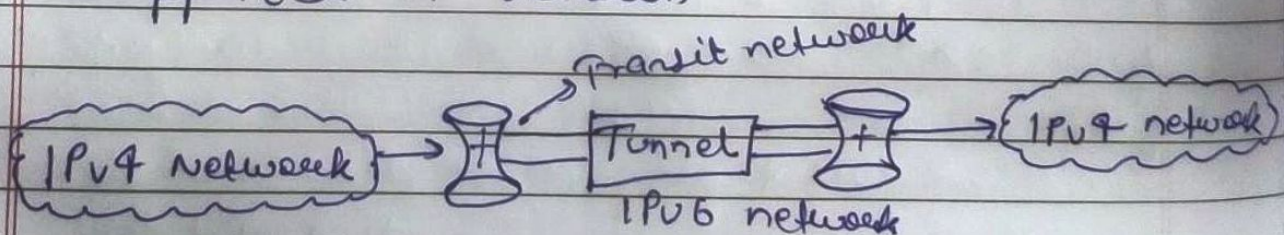 Transit network
IPv4 Network
Tunnel
IPv4 network
IPv6 network